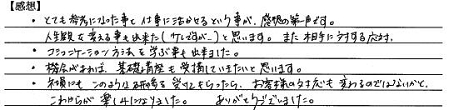 【感想】
・とても参考になった事と仕事に活かせるという事が、感想の第一声です。
人生観を考える事も出来た(少しですが…)と思います。また相手に対する応対、
・コミュニケーション方法を学ぶ事も出来ました。
・機会があれば、基礎講座も受講していきたいと思います。
・夫婦にもこのような研修を受けてもらったら、お客様の対応も変わるのではないかと、
これからが楽しみになりました。ありがとうございました。